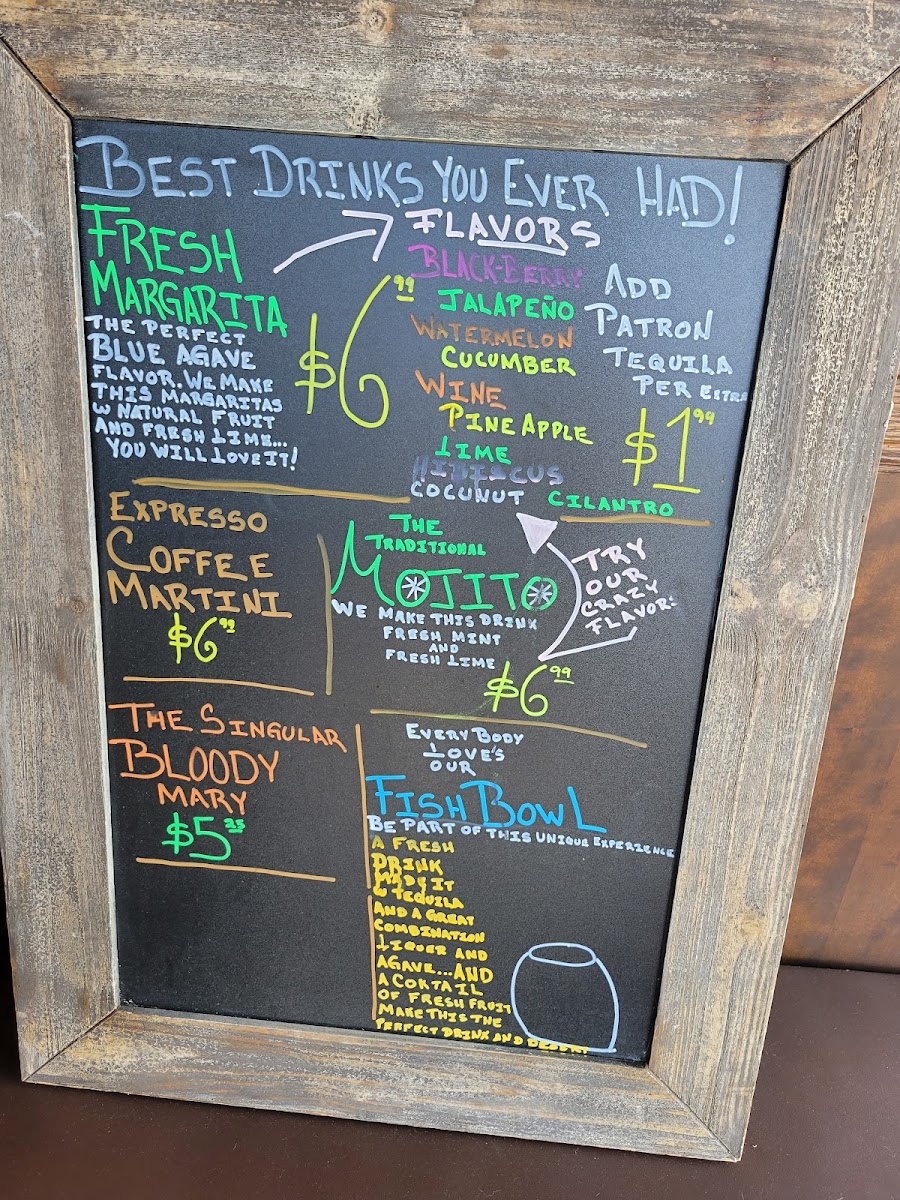 BEST DRINKS YOU EVER HAD!
FRESH
MARGARITA
THE PERFECT
BLUE AGAVE
FLAVOR. WE MAKE
THIS MARGARITAS
W NATURAL FRUIT
AND FRESH LIME...
YOU WILL LOVE IT!
$6 99
FLAVORS
BLACK-BERRY
JALAPEÑO
WATERMELON
CUCUMBER
WINE
PINE APPLE
LIME
HIBISCUS
COCUNUT
CILANTRO
ADD
PATRON
TEQUILA
PER EXTRA
$1 99
EXPRESSO
COFFEE
MARTINI
$6 99
THE
TRADITIONAL
MOJITO
WE MAKE THIS DRINK
FRESH MINT
AND
FRESH LIME
$6 99
TRY
OUR
CRAZY
FLAVORS
THE SINGULAR
BLOODY
MARY
$5 25
EVERY BODY
LOVE'S
OUR
FISH BOWL
BE PART OF THIS UNIQUE EXPERIENCE
A FRESH
DRINK
MADE IT
W TEQUILA
AND A GREAT
COMBINATION
LIQUER AND
AGAVE...AND
A COKTAIL
OF FRESH FRUIT
MAKE THIS THE
PERFECT DRINK AND DESERT